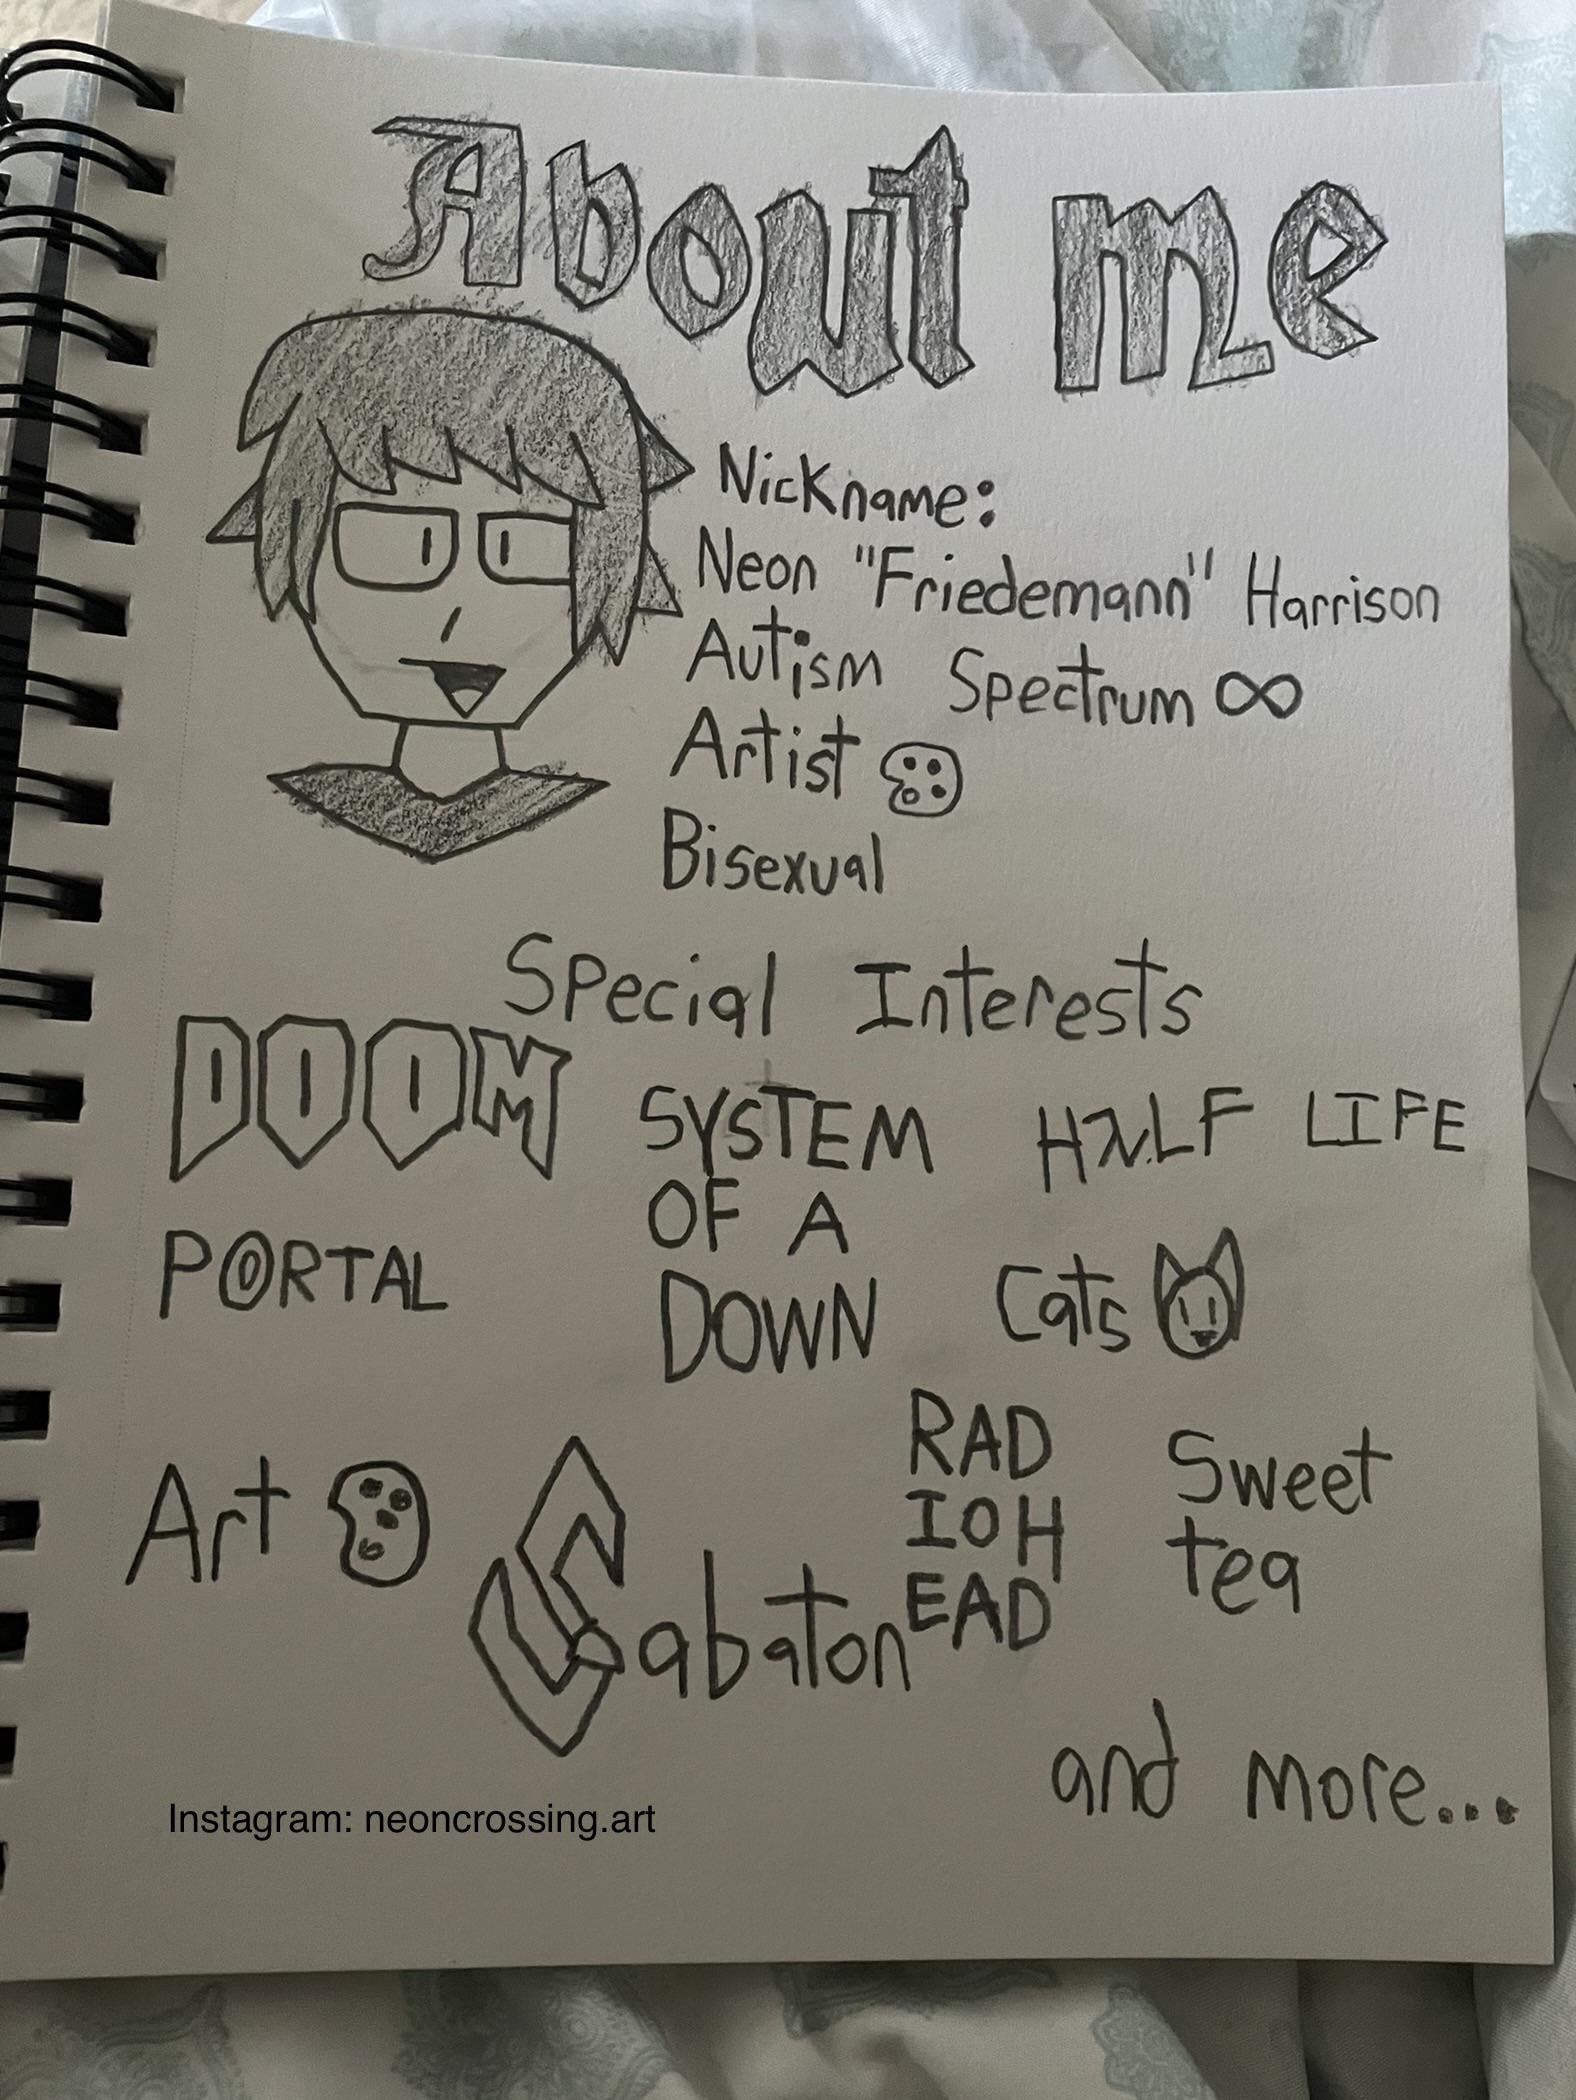 About me
Nickname:
Neon "Friedemann" Harrison
Autism Spectrum ∞
Artist
Bisexual
Special Interests
DOOM
SYSTEM
OF A
DOWN
HλLF LIFE
PORTAL
Cats
Art
Sabaton
RAD
IOH
EAD
Sweet
tea
and more...
Instagram: neoncrossing.art